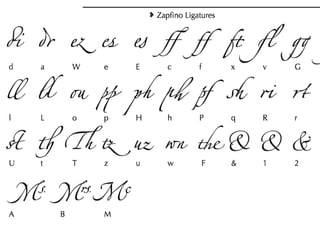 Zapfino Ligatures
di dr ez es es ff ff ft fl gg
d a W e E c f x v G
ll ld ou pp ph ph pf sh ri rt
l L o p H h P q R r
st th Th tz uz wn the & & &
U t T z u w F & 1 2
Ms. Mrs. Mc
A B M